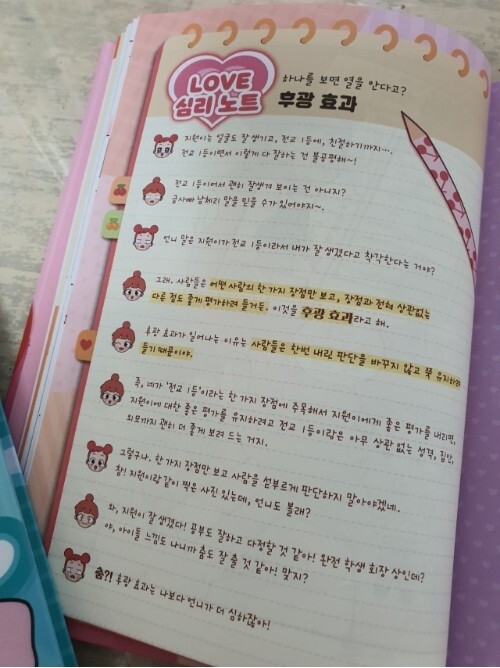 LOVE
심리 노트
하나를 보면 열을 안다고?
후광 효과
지원이는 얼굴도 잘생기고, 전교 1등에, 친절하기까지…
전교 1등이면서 이렇게 다 잘하는 건 불공평해~!
전교 1등이어서 괜히 잘생겨 보이는 건 아니지?
금사빠 남체리 말을 믿을 수가 있어야지~.
언니 말은 지원이가 전교 1등이라서 내가 잘생겼다고 착각한다는 거야?
그래. 사람들은 어떤 사람의 한 가지 장점만 보고, 장점과 전혀 상관없는
다른 점도 좋게 평가하려 들거든. 이것을 후광 효과라고 해.
후광 효과가 일어나는 이유는 사람들은 한번 내린 판단을 바꾸지 않고 쭉 유지하려
들기 때문이야.
즉, 네가 '전교 1등'이라는 한 가지 장점에 주목해서 지원이에게 좋은 평가를 내리면,
지원이에 대한 좋은 평가를 유지하려고 전교 1등이랑은 아무 상관 없는 성격, 집안,
외모까지 괜히 더 좋게 보려 드는 거지.
그렇구나. 한 가지 장점만 보고 사람을 섣부르게 판단하지 말아야겠네.
참! 지원이랑 같이 찍은 사진 있는데, 언니도 볼래?
와, 지원이 잘생겼다! 공부도 잘하고 다정할 것 같아! 완전 학생 회장 상인데?
야, 아이돌 느낌도 나니까 춤도 잘 출 것 같아! 맞지?
춤?! 후광 효과는 나보다 언니가 더 심하잖아!